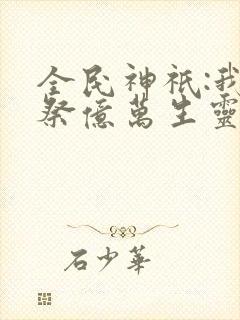 全民神祇:我
祭億萬生靈
石少華